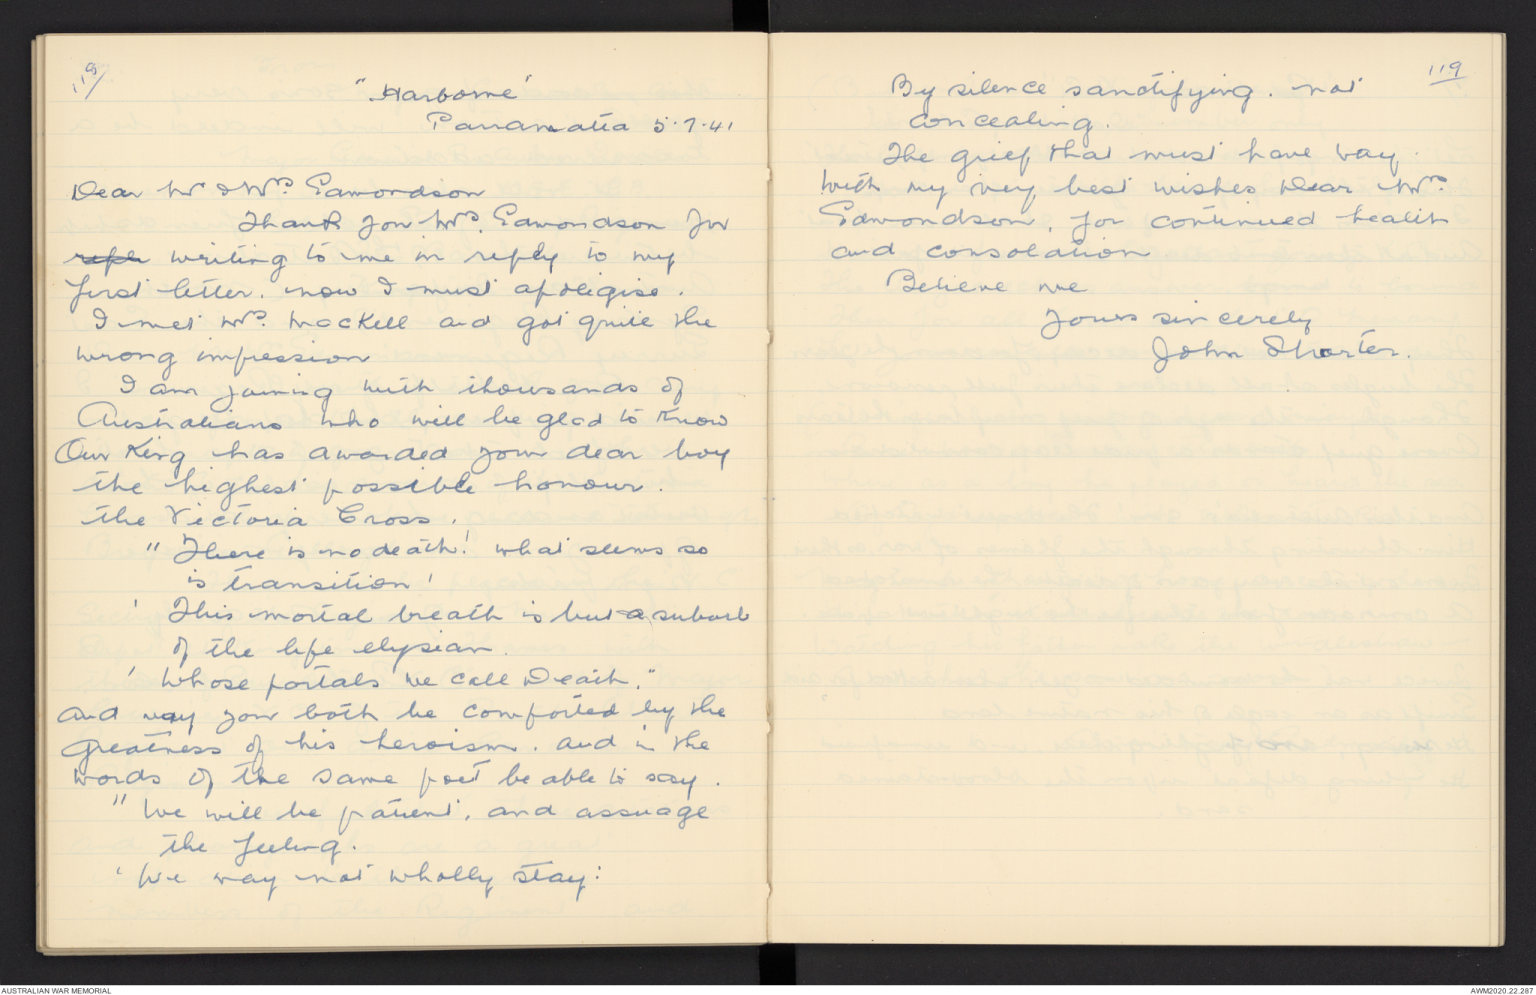 118/
"Harborne"
Parramatta 5.7.41
Dear Mr & Mrs Edmondson
Thank you Mrs. Edmondson for
reple writing to me in reply to my
first letter. now I must apoligise.
I met Mrs. Mackell and got quite the
wrong impression
I am joining with thousands of
Australians who will be glad to know
Our King has awarded your dear boy
the highest possible honour.
the Victoria Cross.
"There is no death! what seems so
is transition'
' This mortal breath is but a suburb
of the life elysian.
' Whose portals we call Death."
and may you both be comforted by the
greatness of his heroism. and in the
words of the same poet be able to say.
" We will be patient, and assuage
the feeling.
' We may not wholly stay:
119
By silence sanctifying. not
concealing.
The grief that must have way.
With my very best wishes Dear Mrs
Edmondson, for continued health
and consolation
Believe me
Yours sincerely
John Shorter.
AUSTRALIAN WAR MEMORIAL
AWM2020.22.287